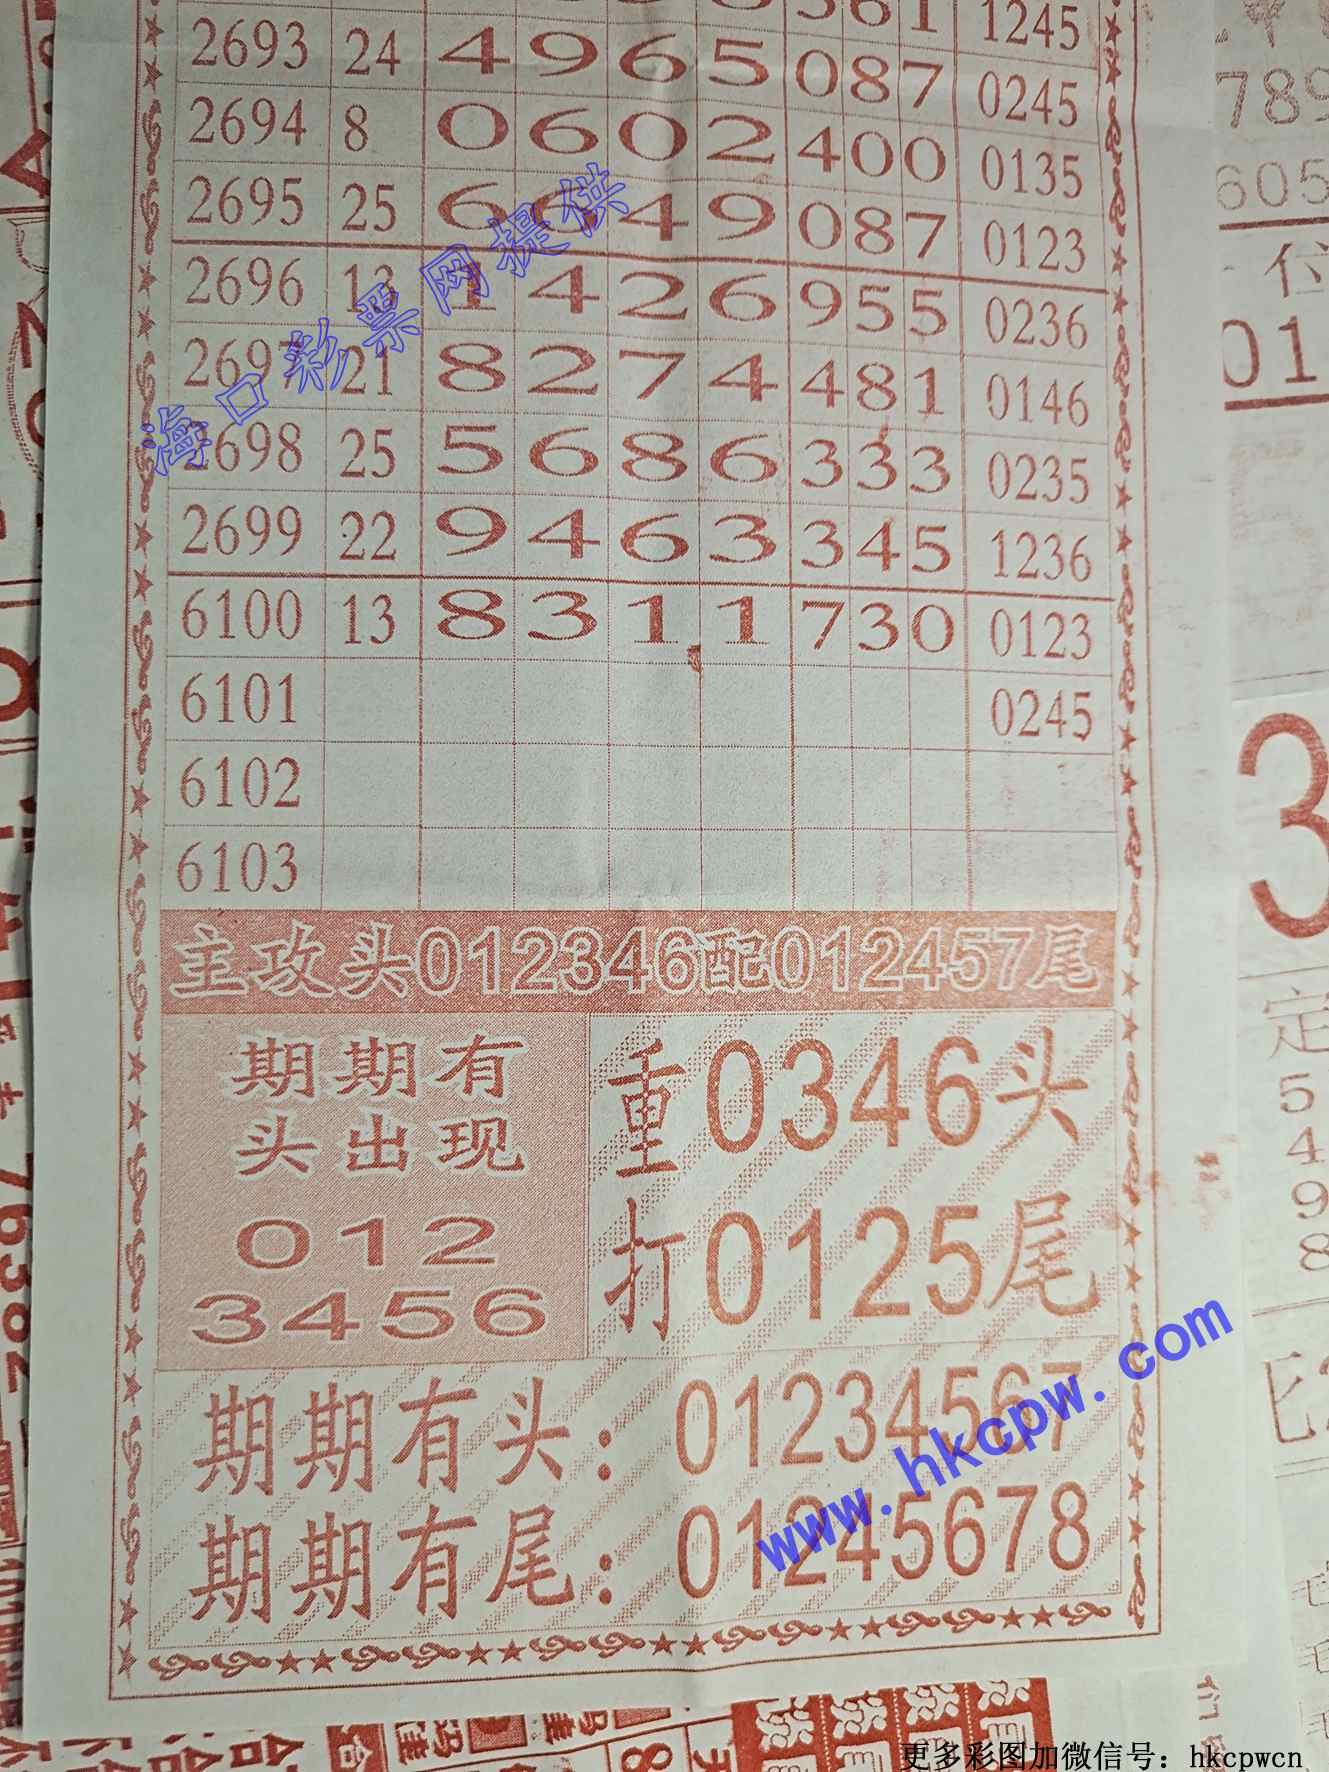 361 1245
2693 24 4 9 6 5 0 8 7 0245
2694 8 0 6 0 2 4 0 0 0135
2695 25 6 6 4 9 0 8 7 0123
2696 13 1 4 2 6 9 5 5 0236
2697 21 8 2 7 4 4 8 1 0146
2698 25 5 6 8 6 3 3 3 0235
2699 22 9 4 6 3 3 4 5 1236
6100 13 8 3 1 1 7 3 0 0123
6101 0245
6102
6103
海口彩票网提供
主攻头012346配012457尾
期期有
头出现
012
3456
重0346头
打0125尾
期期有头：01234567
期期有尾：01245678
www.hkcpw.com
789
605
位
01
3
定
5
4
9
8
更多彩图加微信号：hkcpwcn